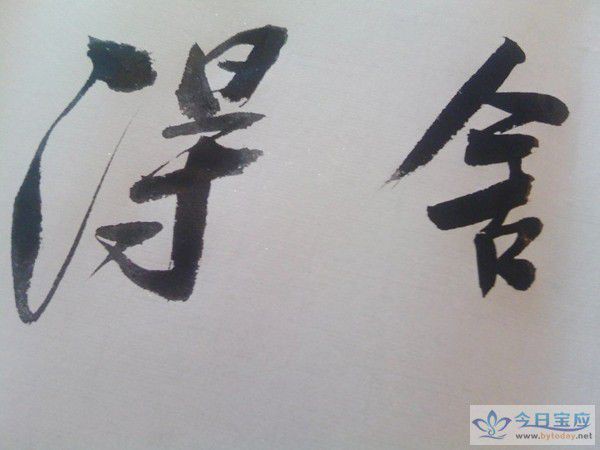 舍得
今日宝应
www.bytoday.net